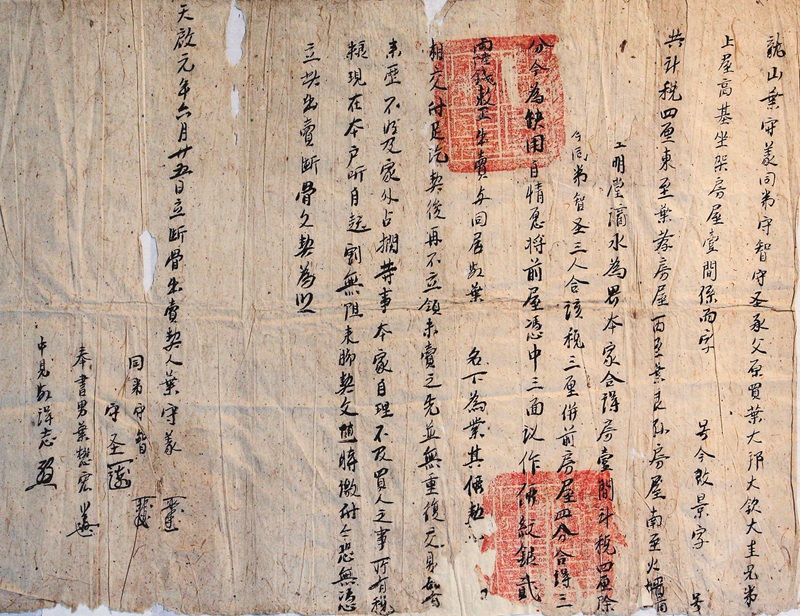 龍山葉守義同弟守智守圣承父原買葉大邦大欽大圭兄弟
上屋高基坐架房屋壹間係雨字 号今改景字 号
共計稅四厘東至葉孝房屋西至葉良孫房屋南至火墻
明堂滴水為界本家合得房壹間計稅四厘除
同弟智圣三人合該稅三厘併前房屋四分合得三
分今為缺用自情愿將前屋憑中三面議作價紋銀貳
兩 錢 正出賣与同居 葉 名下為業其價契
相交付足訖契後再不立領未賣之先並無重復交易如有
來歷不明及家外占攔等事本家自理不及買人之事所有稅
糧現在本户听自起割無阻來脚契文隨時繳付今恐無憑
立此出賣断骨文契為炤
天啟元年六月廿五日立断骨出賣契人葉守義
同弟守智
守圣
奉書男葉懋宏
中見 得志